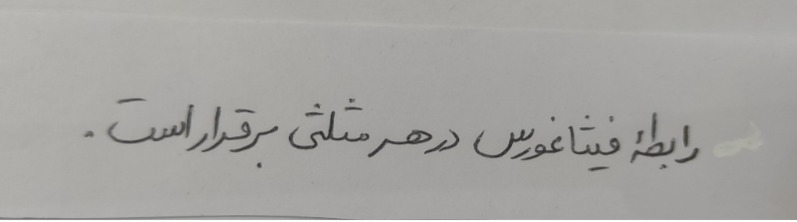 رابطهٔ فیثاغورس در هر مثلثی برقرار است .